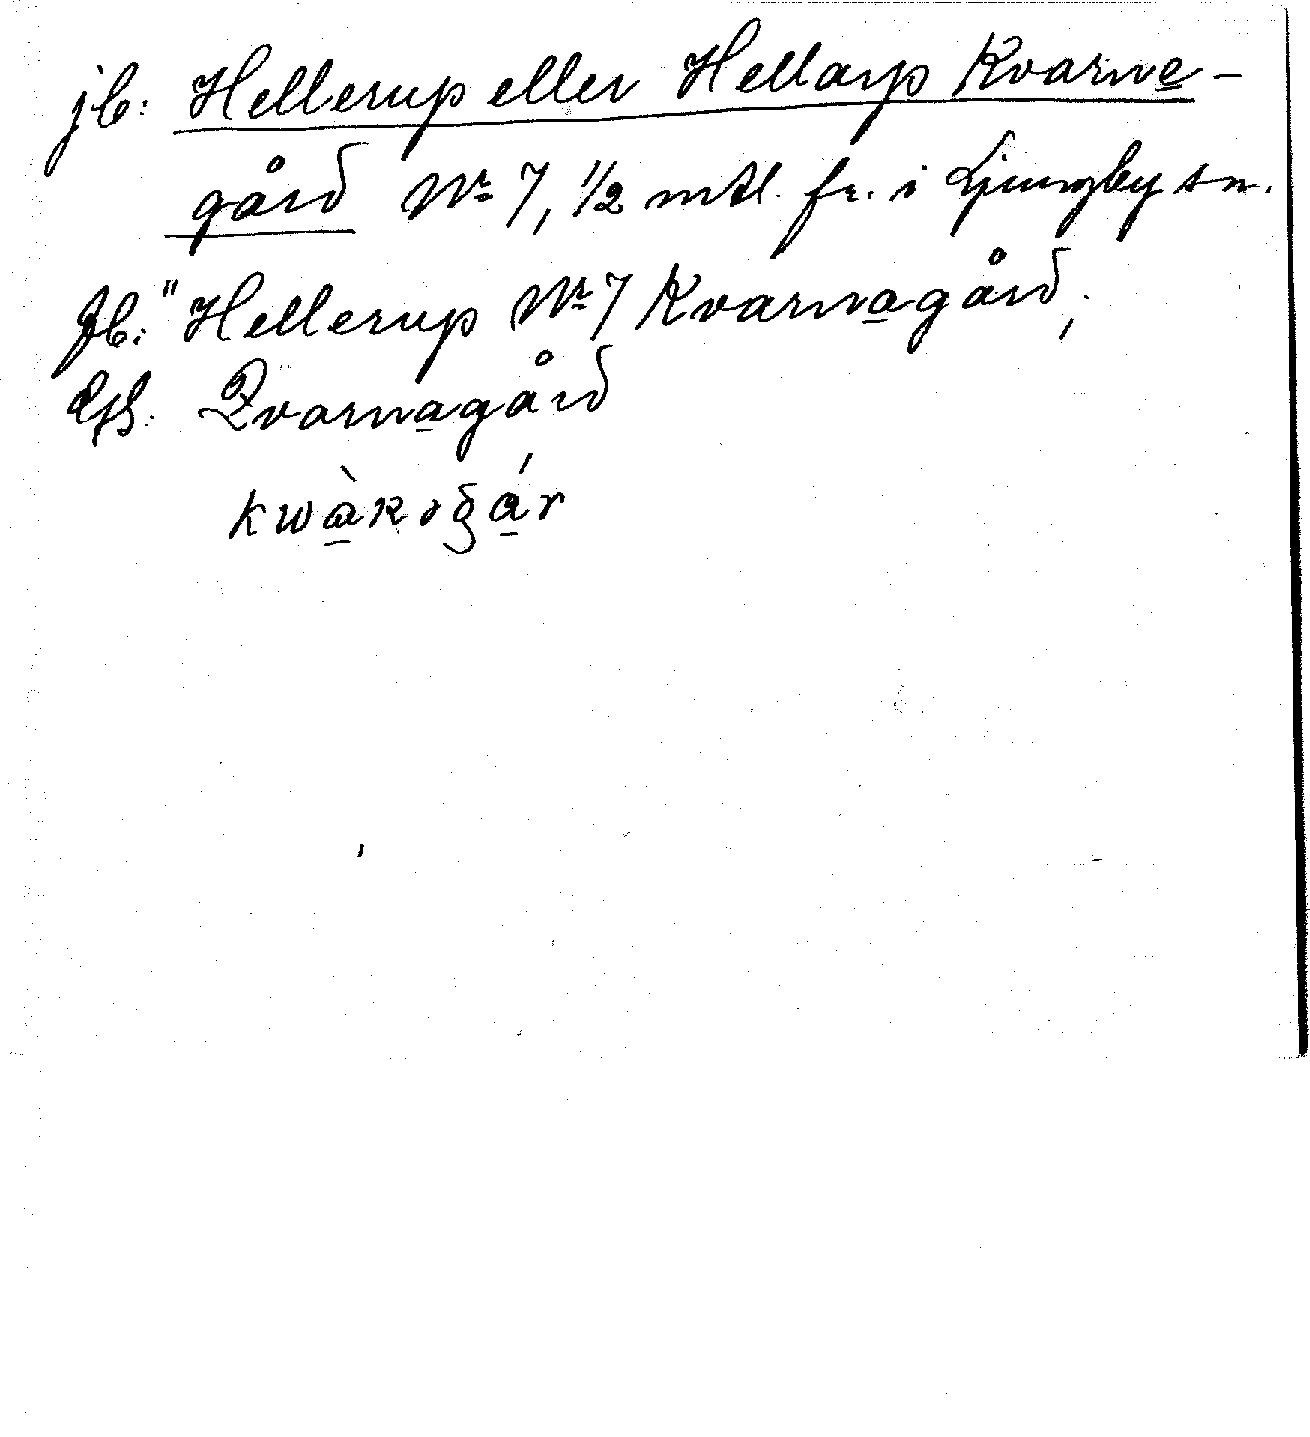 jb: Hellerup eller Hellarp Kvarne-
gård Nr 7, 1/2 mtl. fr. i Ljungby sn.
Jb: "Hellerup Nr 7 Kvarnagård,
Qvarnagård